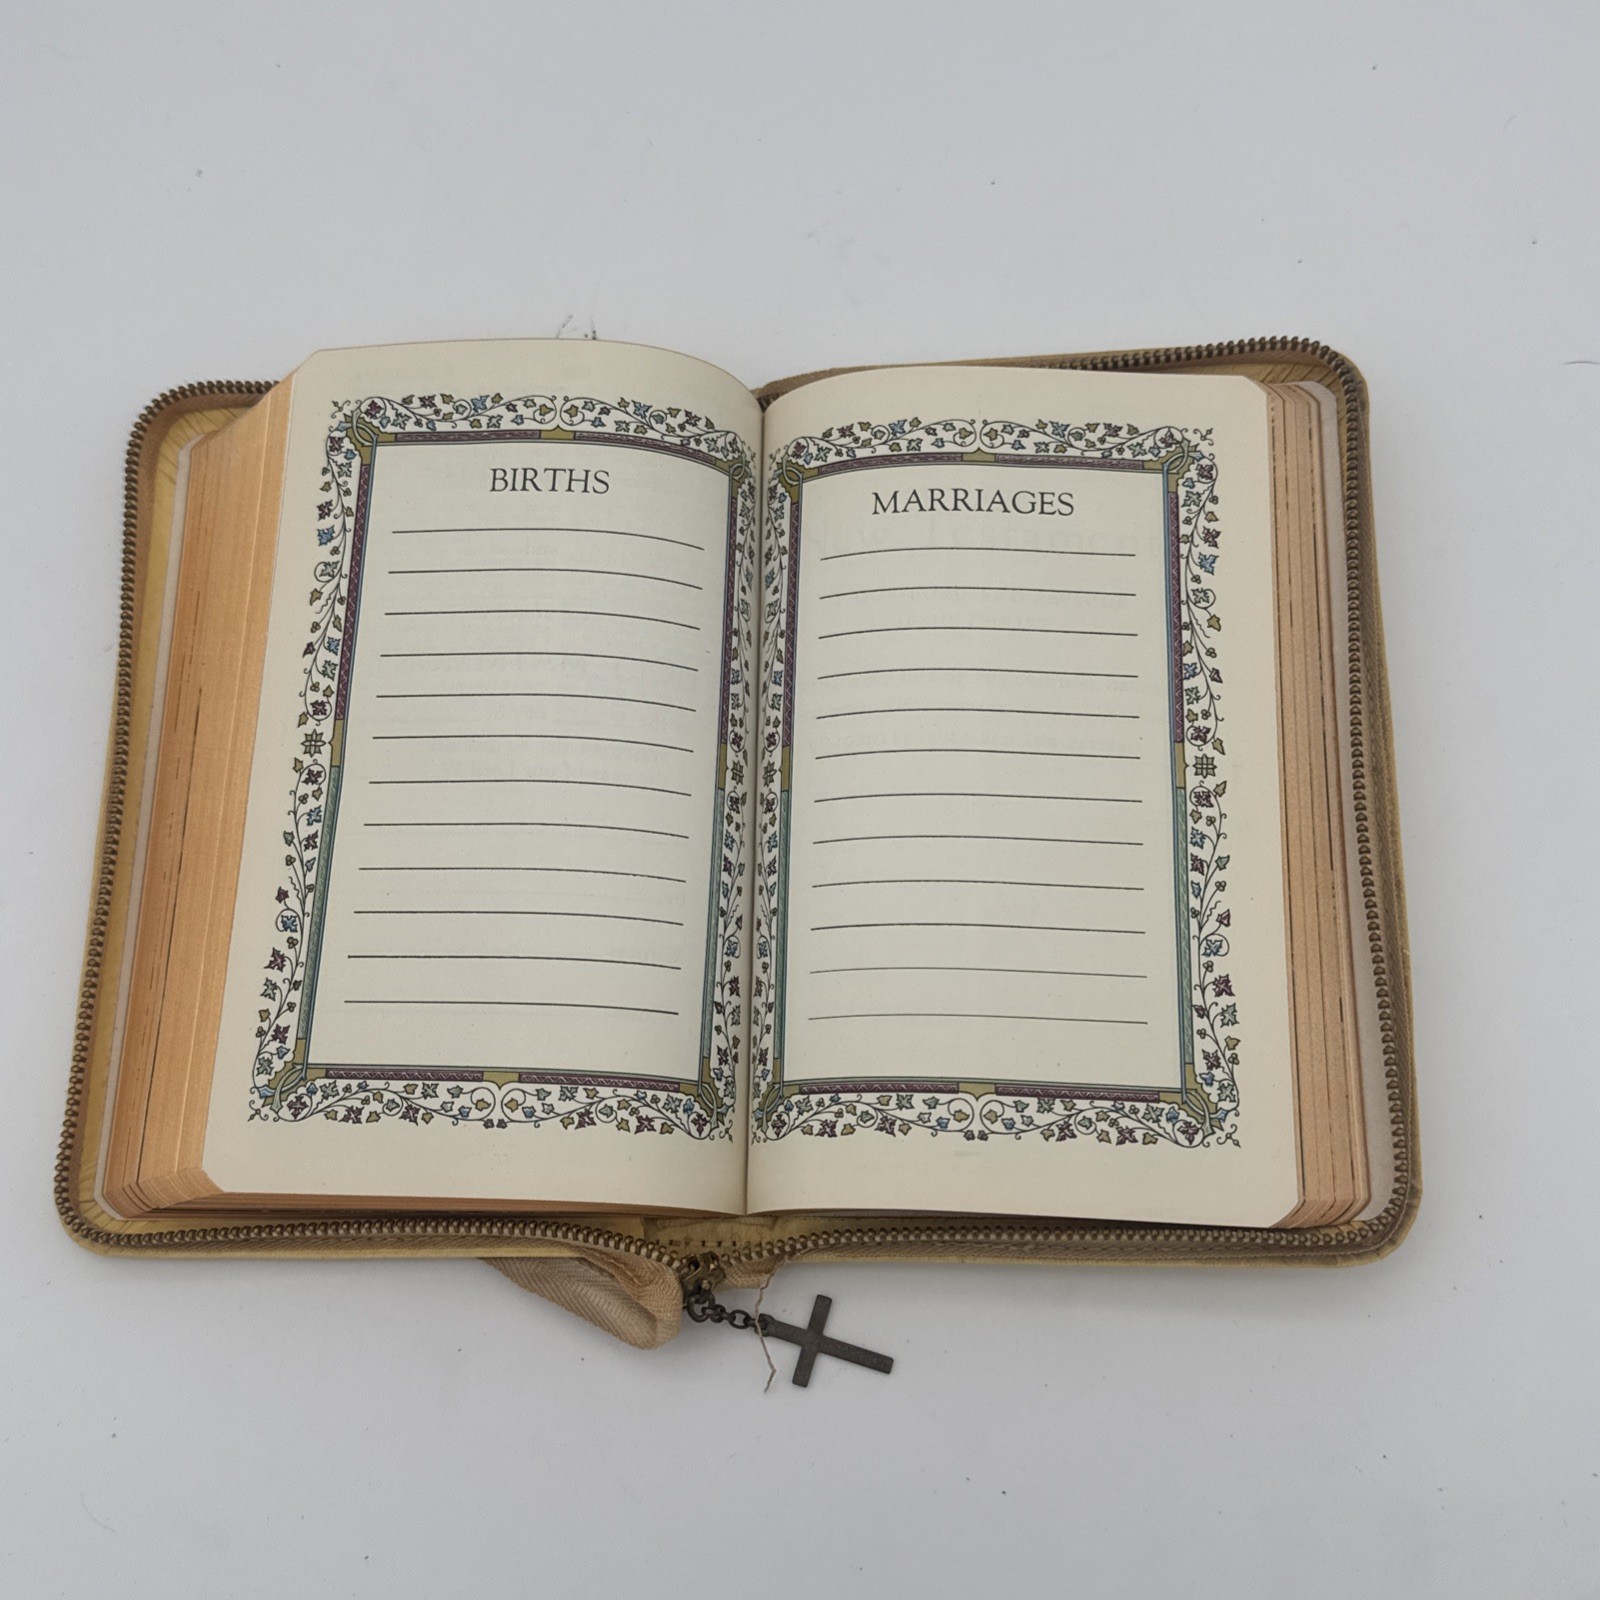 BIRTHS
MARRIAGES